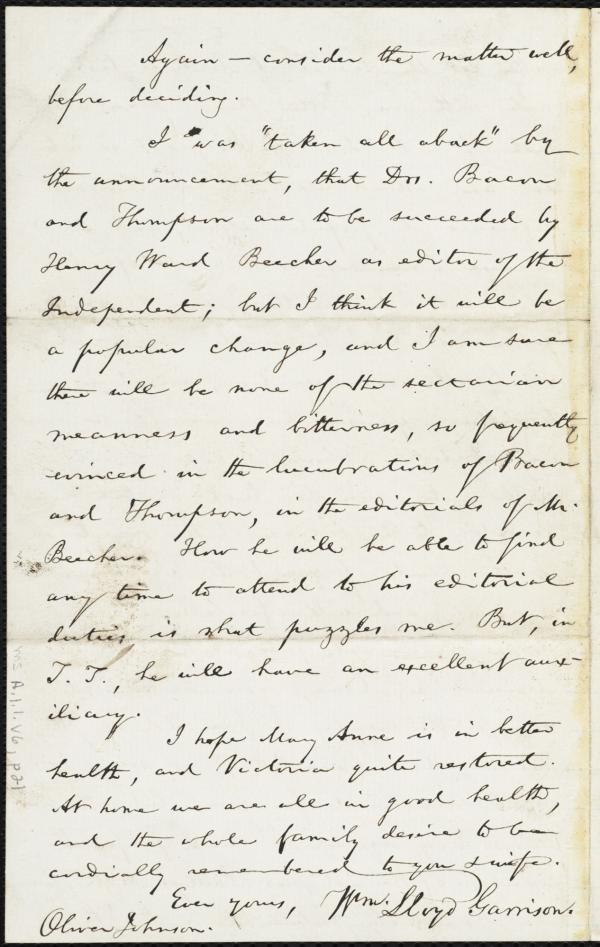 Again — consider the matter well,
before deciding.
I was "taken all aback" by
the announcement, that Drs. Bacon
and Thompson are to be succeeded by
Henry Ward Beecher as editor of the
Independent; but I think it will be
a popular change, and I am sure
there will be none of the sectarian
meanness and bitterness, so frequently
evinced in the lucubrations of Bacon
and Thompson, in the editorials of Mr.
Beecher. How he will be able to find
any time to attend to his editorial
duties is what puzzles me. But, in
T. T., he will have an excellent aux-
iliary.
I hope Mary Anne is in better
health, and Victoria quite restored.
At home we are all in good health,
and the whole family desire to be
cordially remembered to you
Ever yours, Wm. Lloyd Garrison.
Oliver Johnson.
Ms. A.1.1. V6, p21